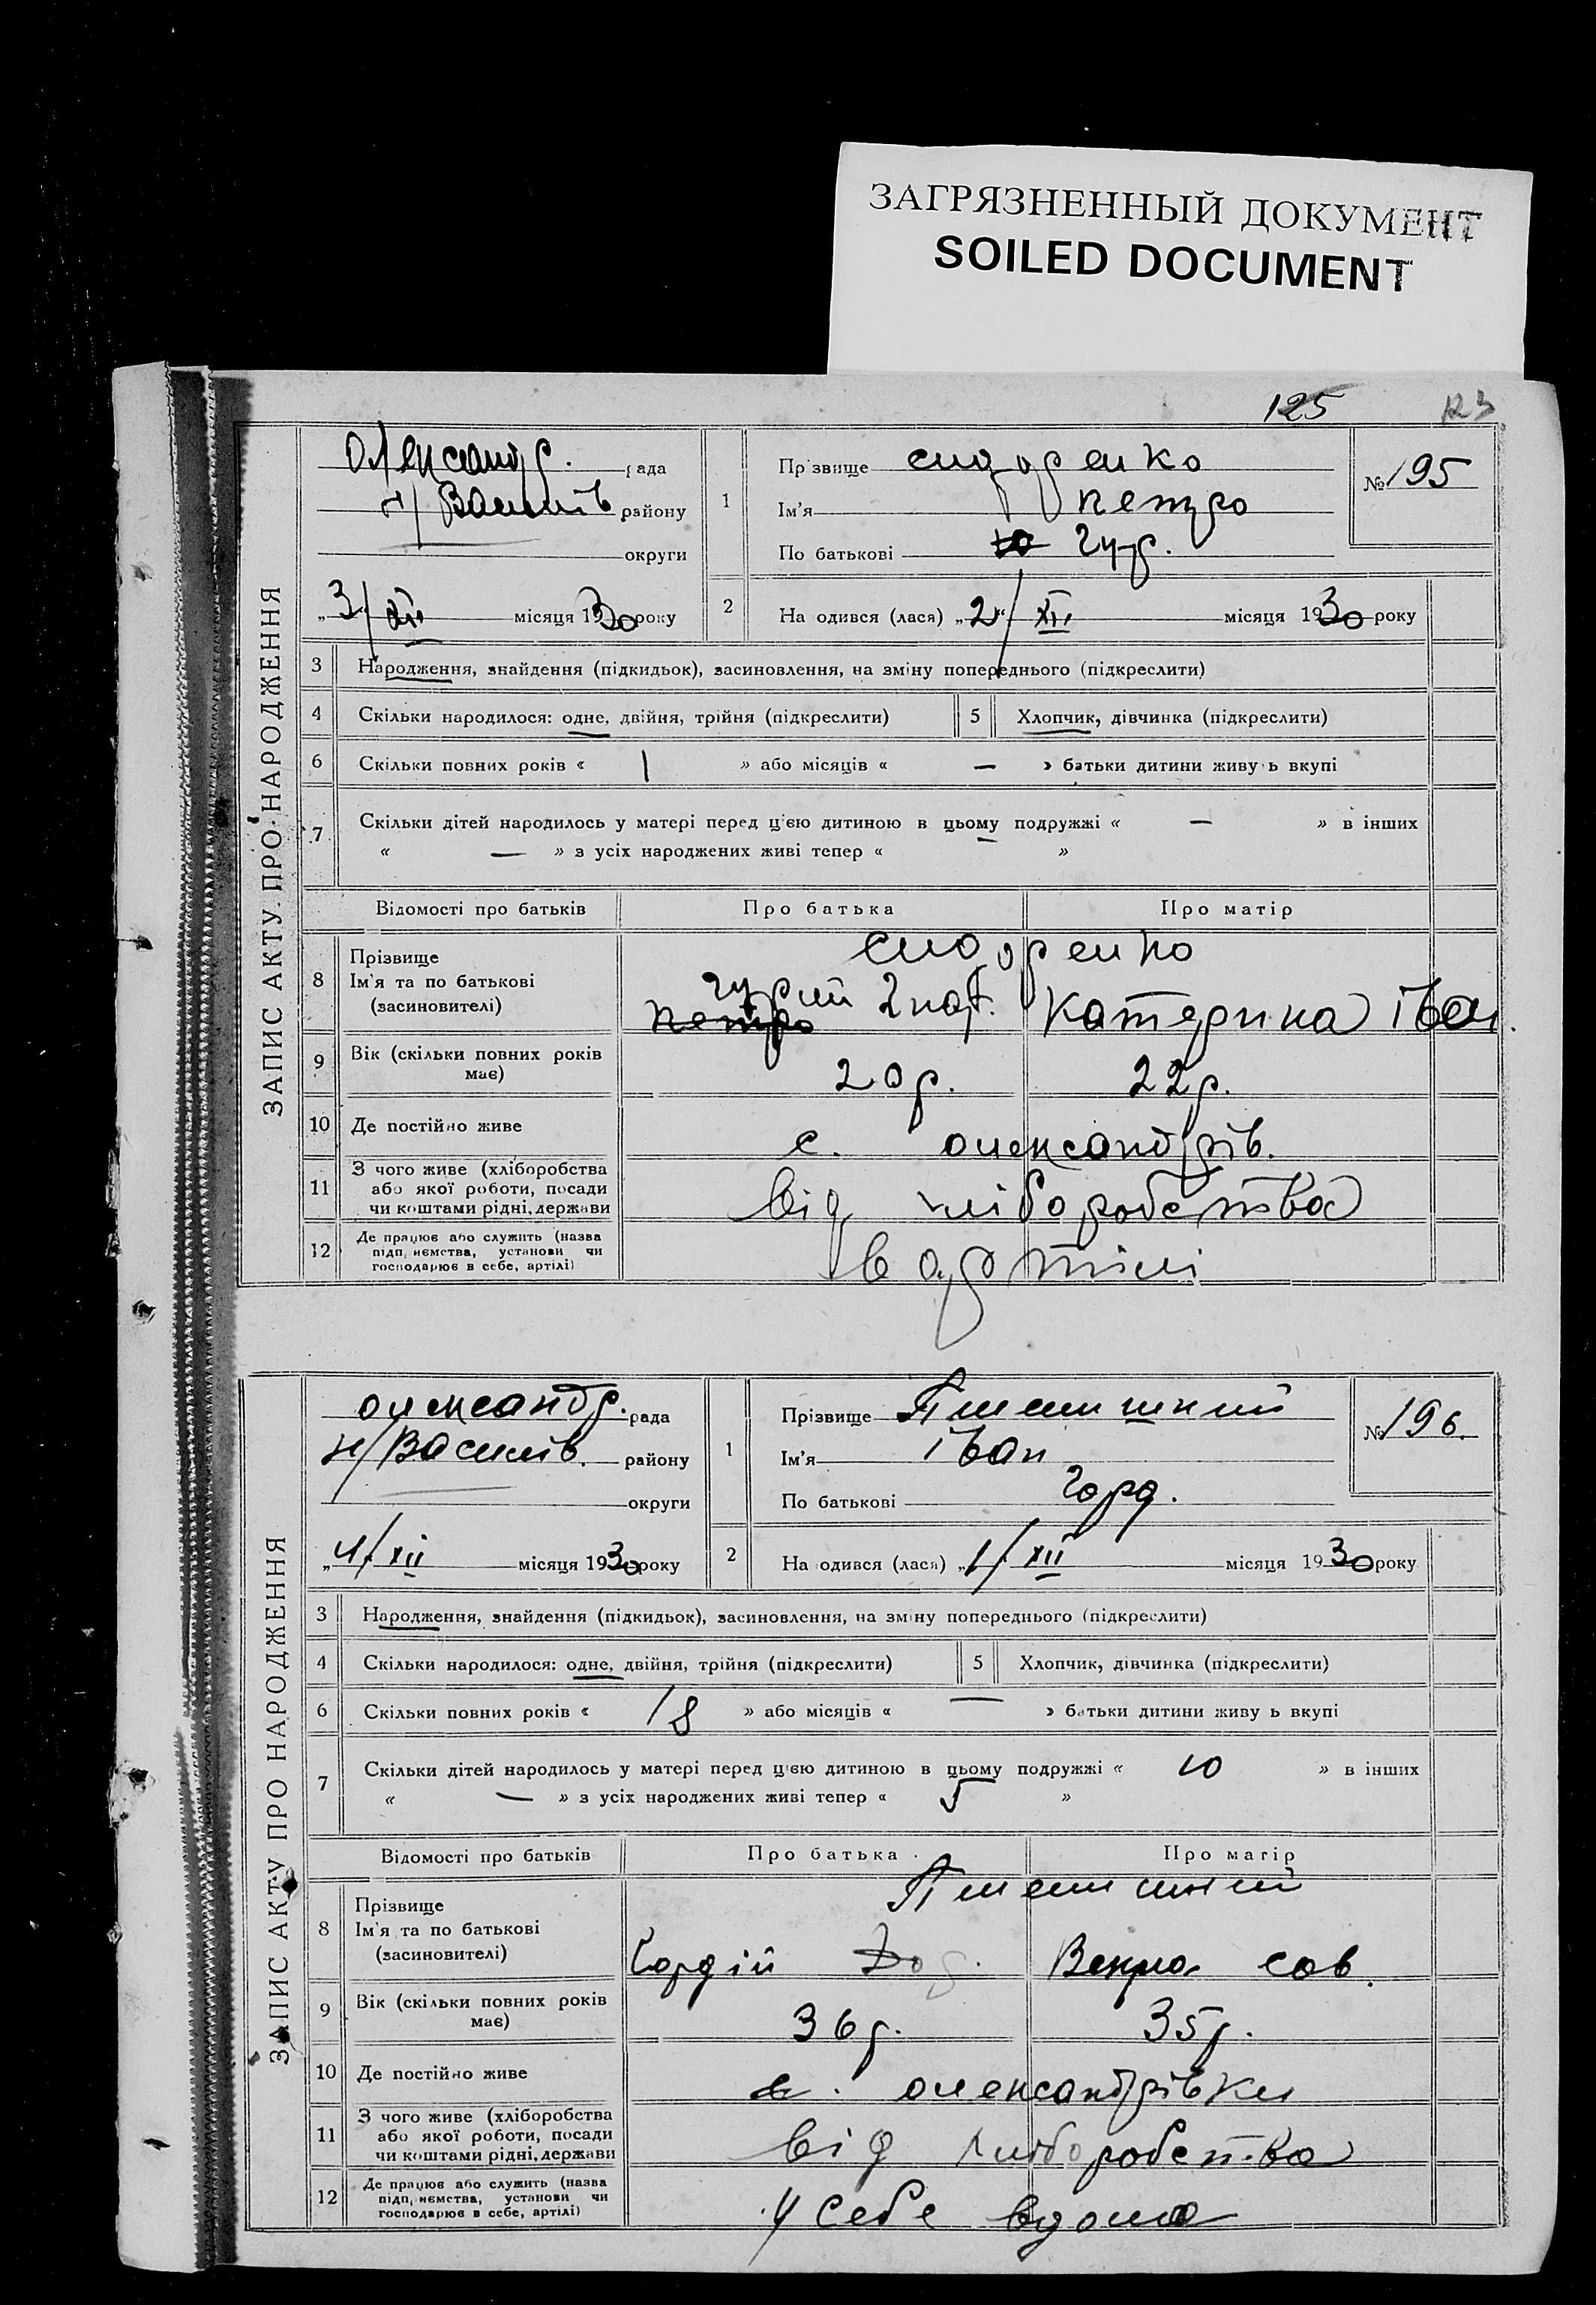 ЗАГРЯЗНЕННЫЙ ДОКУМЕНТ
SOILED DOCUMENT
125
123
ЗАПИС АКТУ ПРО НАРОДЖЕННЯ
Олександр. рада
Н/Василів району
округи
„3/XII місяця 1930 року
1
Прізвище Сидоренко
Ім'я Петро
По батькові Гур.
№ 195
2
На одився (лася) „2“/XII місяця 1930 року
3 Народження, знайдення (підкидьок), засиновлення, на зміну попереднього (підкреслити)
4 Скільки народилося: одне, двійня, трійня (підкреслити) 5 Хлопчик, дівчинка (підкреслити)
6 Скільки повних років « 1 » або місяців « — » батьки дитини живу ь вкупі
7 Скільки дітей народилось у матері перед цією дитиною в цьому подружжі « — » в інших
« — » з усіх народжених живі тепер « »
Відомості про батьків Про батька Про матір
8 Прізвище
Ім'я та по батькові
(засиновителі)
Сидоренко
Гурий Гнат. Катерина Іван.
9 Вік (скільки повних років
має)
20 р. 22 р.
10 Де постійно живе с. Олександрів.
11 З чого живе (хліборобства
або якої роботи, посади
чи коштами рідні, держави
від хліборобства
12 Де працює або служить (назва
підп, иємства, установи чи
господарює в себе, артілі)
в артілі
ЗАПИС АКТУ ПРО НАРОДЖЕННЯ
Олександр. рада
Н/Василів. району
округи
„4/XII місяця 1930 року
1
Прізвище Пшеничний
Ім'я Іван
По батькові Горд.
№ 196.
2
На одився (лася) „1/XII місяця 1930 року
3 Народження, знайдення (підкидьок), засиновлення, на зміну попереднього (підкреслити)
4 Скільки народилося: одне, двійня, трійня (підкреслити) 5 Хлопчик, дівчинка (підкреслити)
6 Скільки повних років « 18 » або місяців « — » батьки дитини живу ь вкупі
7 Скільки дітей народилось у матері перед цією дитиною в цьому подружжі « 10 » в інших
« — » з усіх народжених живі тепер « 5 »
Відомості про батьків Про батька Про матір
8 Прізвище
Ім'я та по батькові
(засиновителі)
Пшеничний
Гордій Сав.
9 Вік (скільки повних років
має)
36 р. 35 р.
10 Де постійно живе с. Олександрівки
11 З чого живе (хліборобства
або якої роботи, посади
чи коштами рідні, держави
від хліборобства
12 Де працює або служить (назва
підп, иємства, установи чи
господарює в себе, артілі)
у себе вдома